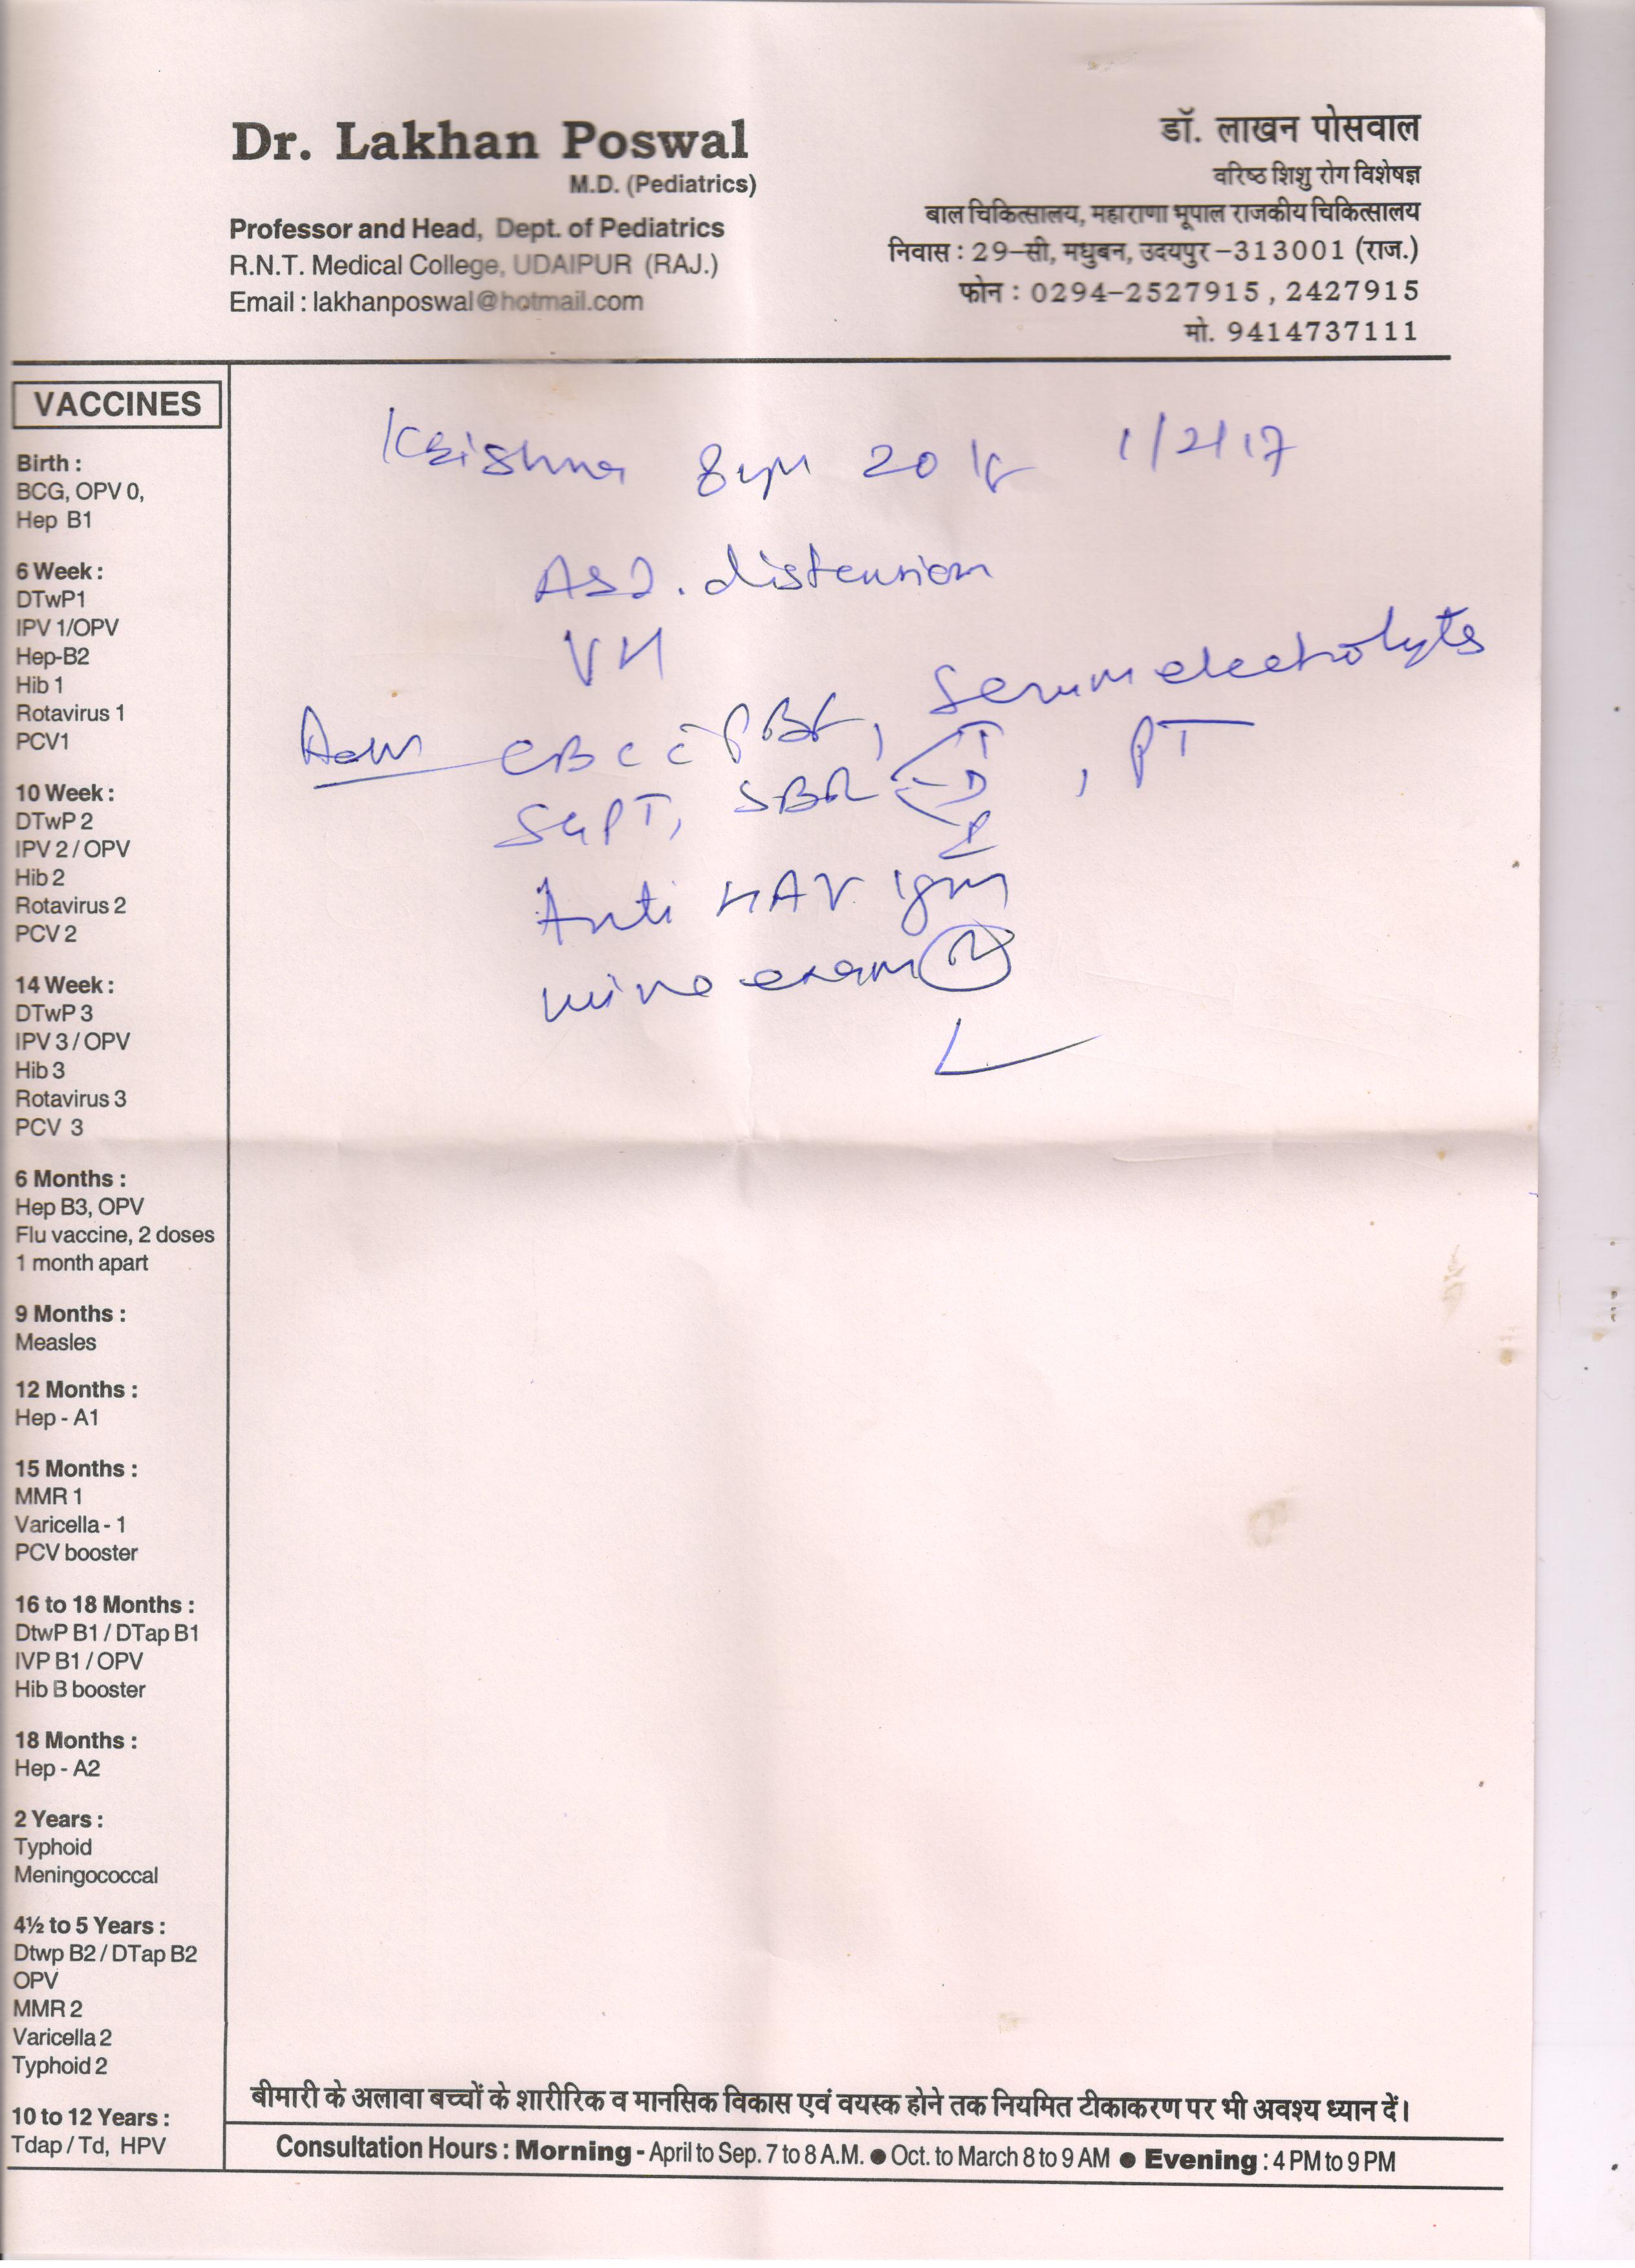 Dr. Lakhan Poswal
M.D. (Pediatrics)
Professor and Head, Dept. of Pediatrics
R.N.T. Medical College, UDAIPUR (RAJ.)
Email : lakhanposwal@hotmail.com
डॉ. लाखन पोसवाल
वरिष्ठ शिशु रोग विशेषज्ञ
बाल चिकित्सालय, महाराणा भूपाल राजकीय चिकित्सालय
निवास : 29-सी, मधुबन, उदयपुर-313001 (राज.)
फोन : 0294-2527915, 2427915
मो. 9414737111
VACCINES
Birth :
BCG, OPV 0,
Hep B1
6 Week :
DTwP1
IPV 1/OPV
Hep-B2
Hib 1
Rotavirus 1
PCV1
10 Week :
DTwP 2
IPV 2 / OPV
Hib 2
Rotavirus 2
PCV 2
14 Week :
DTwP 3
IPV 3 / OPV
Hib 3
Rotavirus 3
PCV 3
6 Months :
Hep B3, OPV
Flu vaccine, 2 doses
1 month apart
9 Months :
Measles
12 Months :
Hep - A1
15 Months :
MMR 1
Varicella - 1
PCV booster
16 to 18 Months :
DtwP B1 / DTap B1
IVP B1 / OPV
Hib B booster
18 Months :
Hep - A2
2 Years :
Typhoid
Meningococcal
4½ to 5 Years :
Dtwp B2 / DTap B2
OPV
MMR 2
Varicella 2
Typhoid 2
10 to 12 Years :
Tdap / Td, HPV
Krishna 20 1/2/17
distension
VH
CBC c̄ PBF, Serum electrolyts
SGPT, SBR T D, PT
Anti HAV IgM
urine exam
बीमारी के अलावा बच्चों के शारीरिक व मानसिक विकास एवं वयस्क होने तक नियमित टीकाकरण पर भी अवश्य ध्यान दें।
Consultation Hours : Morning - April to Sep. 7 to 8 A.M. ● Oct. to March 8 to 9 AM ● Evening : 4 PM to 9 PM